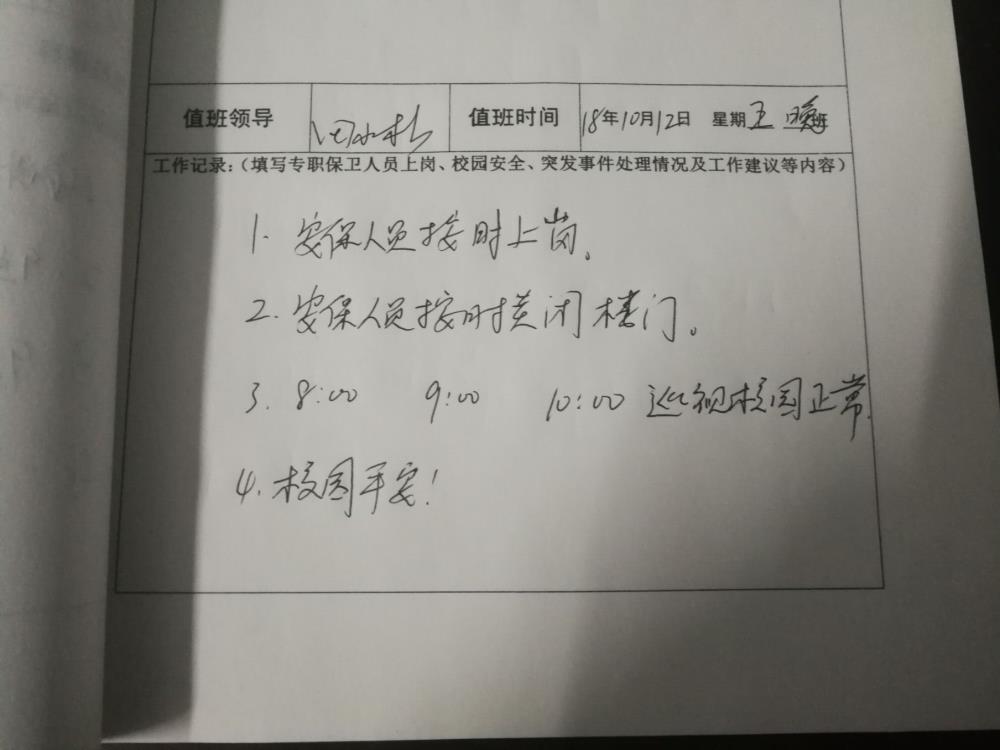 值班领导 值班时间 18年10月12日 星期五 晚班
工作记录:(填写专职保卫人员上岗、校园安全、突发事件处理情况及工作建议等内容)
1. 安保人员按时上岗。
2. 安保人员按时关闭楼门。
3. 8:00 9:00 10:00 巡视校园正常.
4. 校园平安!